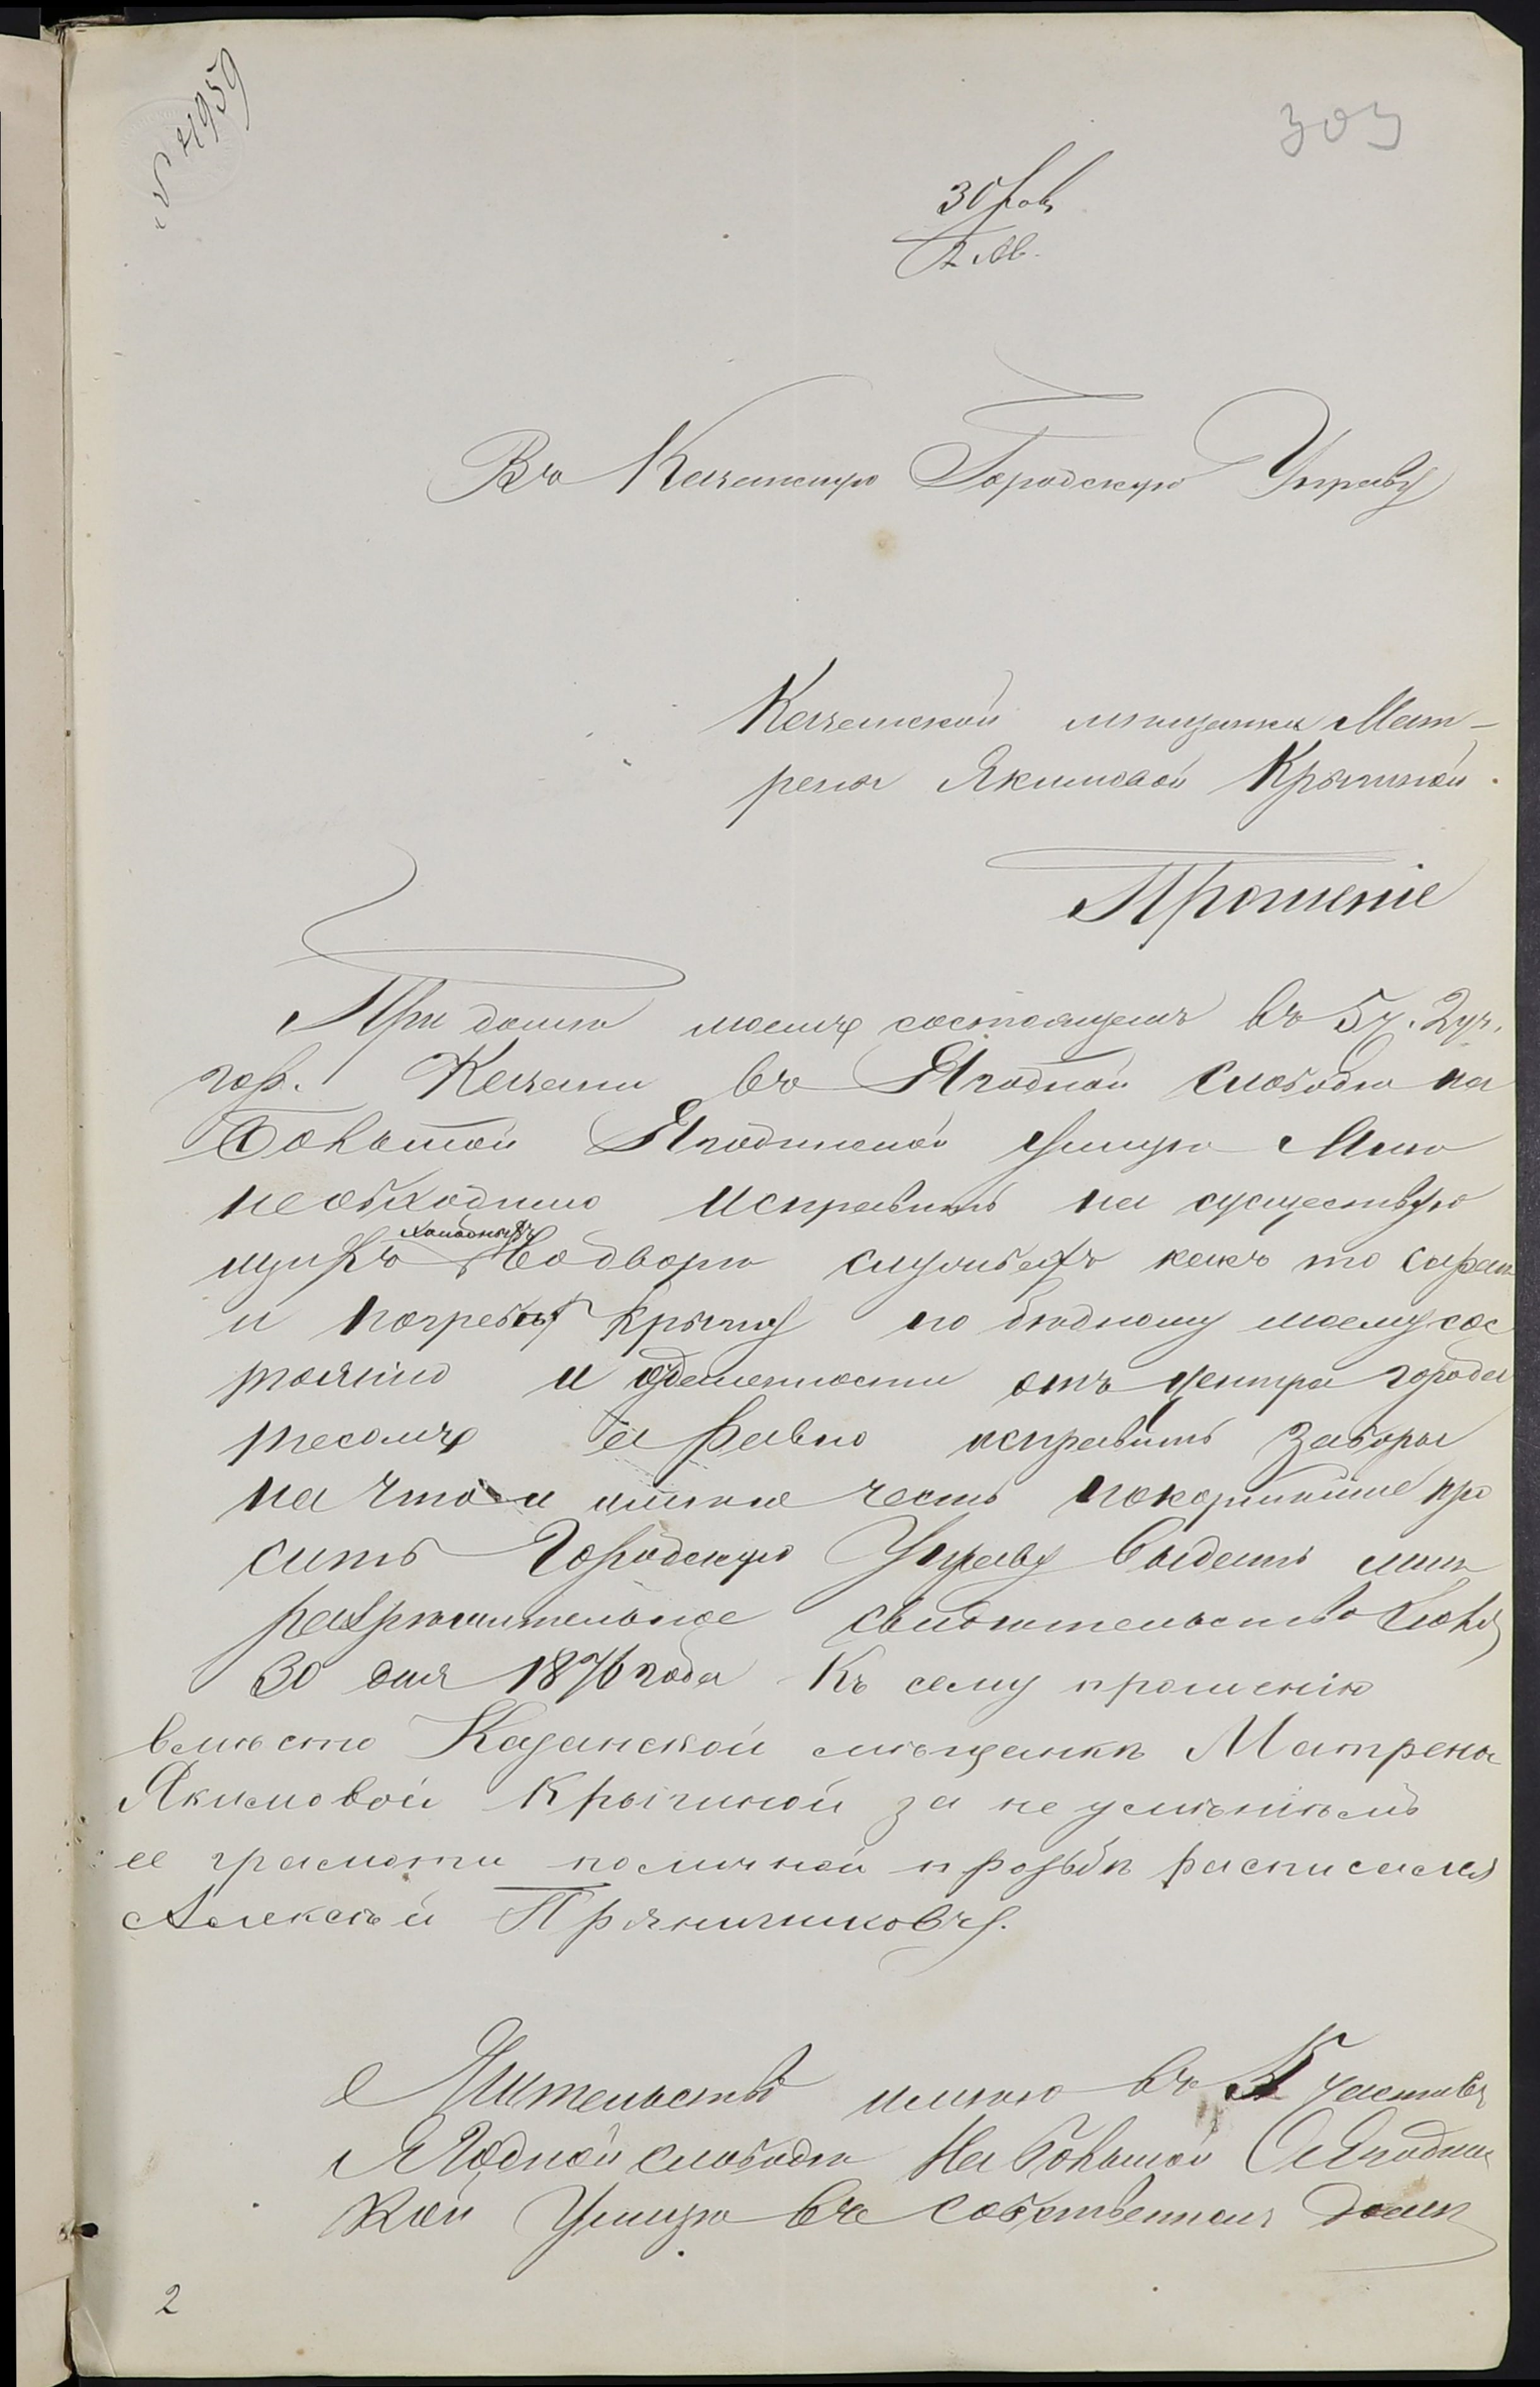 № 4959
303
30 Іюль
Въ Казанскую Городскую Управу
Казанской мѣщанки Мат-
рены Якимовой Крычиной.
Прошеніе
При домѣ моемъ состоящемъ въ 5 ч. 2 уч.
гор. Казани въ Ягодной слободѣ на
Большой Ягодинской улицѣ Мнѣ
необходимо исправить на существую
щихъ холодныхъ надворн службахъ какъ то сараѣ
и погребѣ крышу по бѣдному моему сос
тоянію и отдаленности отъ центра города
тесомъ а равно исправить заборы
на что и имѣю честь покорнѣйше про
сить Городскую Управу выдать мнѣ
разрѣшительное свидѣтельство Іюля
30 дня 1876 года Къ сему прошенію
вмѣсто Казанской мѣщанкѣ Матрены
Якимовой Крычиной за не умѣніемъ
ее грамоты по личной прозьбѣ расписался
Алексѣй Пряничниковъ.
Жительство имѣю въ 5 части въ
Ягодной слободѣ На Большой Ягодин
кой Улицѣ въ собственномъ домѣ
2